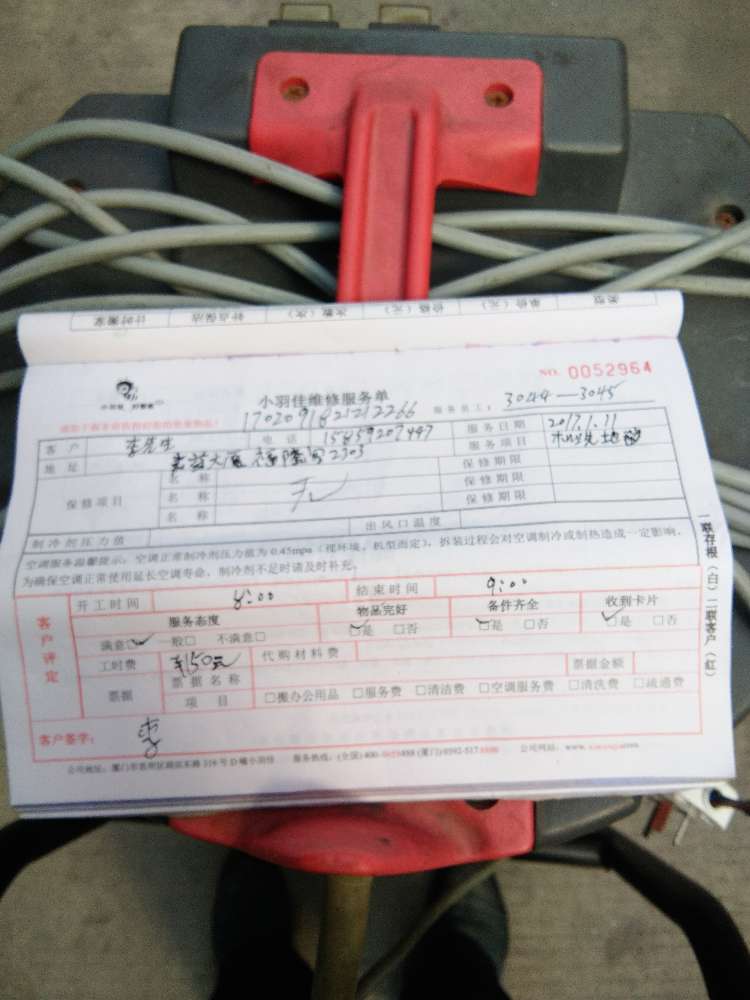 类型 单价（元） 价格（元） 次数（次） 钟点保洁 计时搬家
NO. 0052964
小羽佳维修服务单
17020918212122266 服务员工: 3044—3045
客户 李先生 电话 15859207447 服务日期 2017.1.11
地址 2303 服务项目
保修项目 名称 无 保修期限
名称 保修期限
名称 保修期限
制冷剂压力值 出风口温度
空调服务温馨提示：空调正常制冷剂压力值为0.45mpa（视环境，机型而定），拆装过程会对空调制冷或制热造成一定影响，
为确保空调正常使用延长空调寿命，制冷剂不足时请及时补充。
客户评定
开工时间 8:00 结束时间 9:00
服务态度 物品完好 备件齐全 收到卡片
满意□ 一般□ 不满意□ □是 □否 □是 □否 □是 □否
工时费 ¥150元 代购材料费
票据 票据名称 票据金额
项目 □搬办公用品 □服务费 □清洁费 □空调服务费 □清洗费 □疏通费
客户签字： 李
服务热线：(全国)400- (厦门)0592-517 公司网站：www.
一联存根（白）二联客户（红）